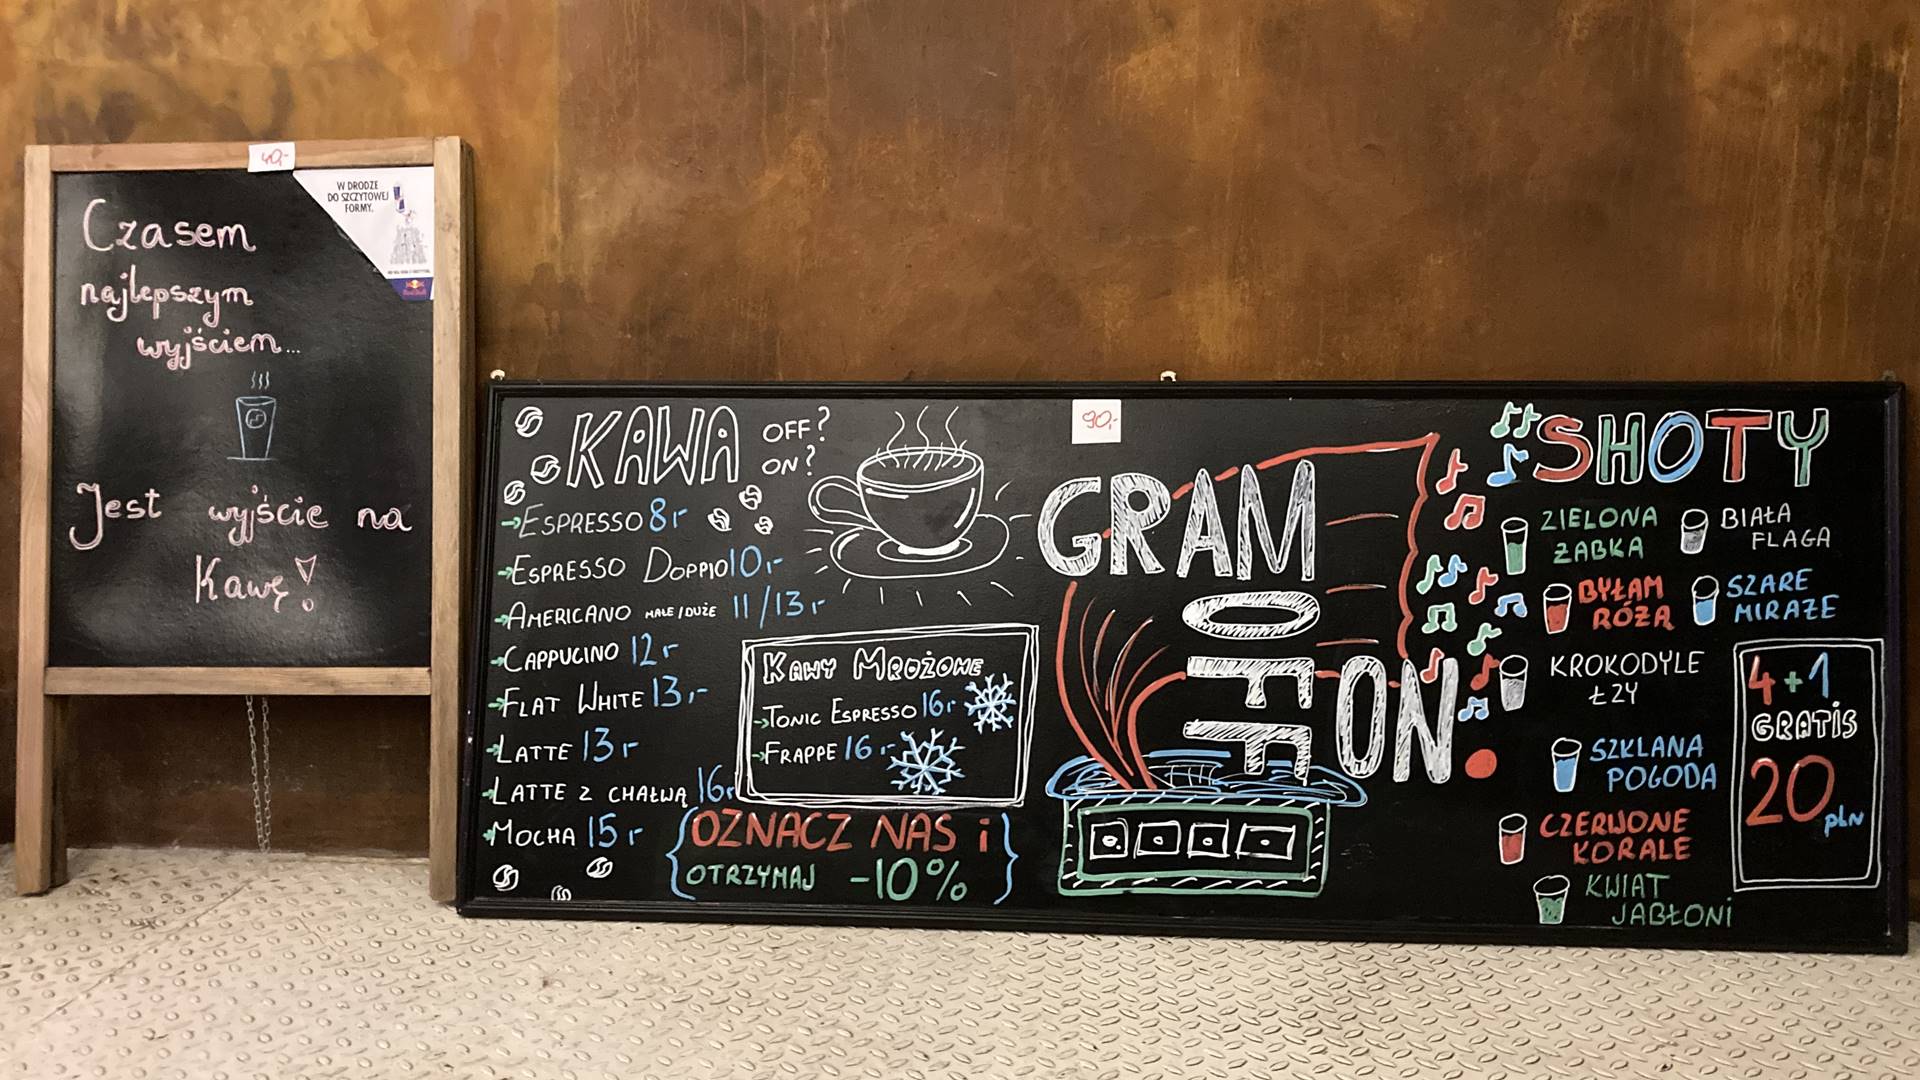 40,-
W DRODZE
DO SZCZYTOWEJ
FORMY.
Czasem
najlepszym
wyjściem...
Jest wyjście na
Kawę!
Red Bull
90,-
KAWA OFF?
ON?
ESPRESSO 8,-
ESPRESSO DOPPIO 10,-
AMERICANO MAŁE/DUŻE 11/13,-
CAPPUCINO 12,-
FLAT WHITE 13,-
LATTE 13,-
LATTE Z CHAŁWĄ 16,-
MOCHA 15,-
KAWY MROŻONE
TONIC ESPRESSO 16,-
FRAPPE 16,-
OZNACZ NAS i
OTRZYMAJ -10%
GRAM
OFF
ON.
SHOTY
ZIELONA
ŻABKA
BIAŁA
FLAGA
BYŁAM
RÓŻĄ
SZARE
MIRAŻE
KROKODYLE
ŁZY
SZKLANA
POGODA
CZERWONE
KORALE
KWIAT
JABŁONI
4+1
GRATIS
20
PLN